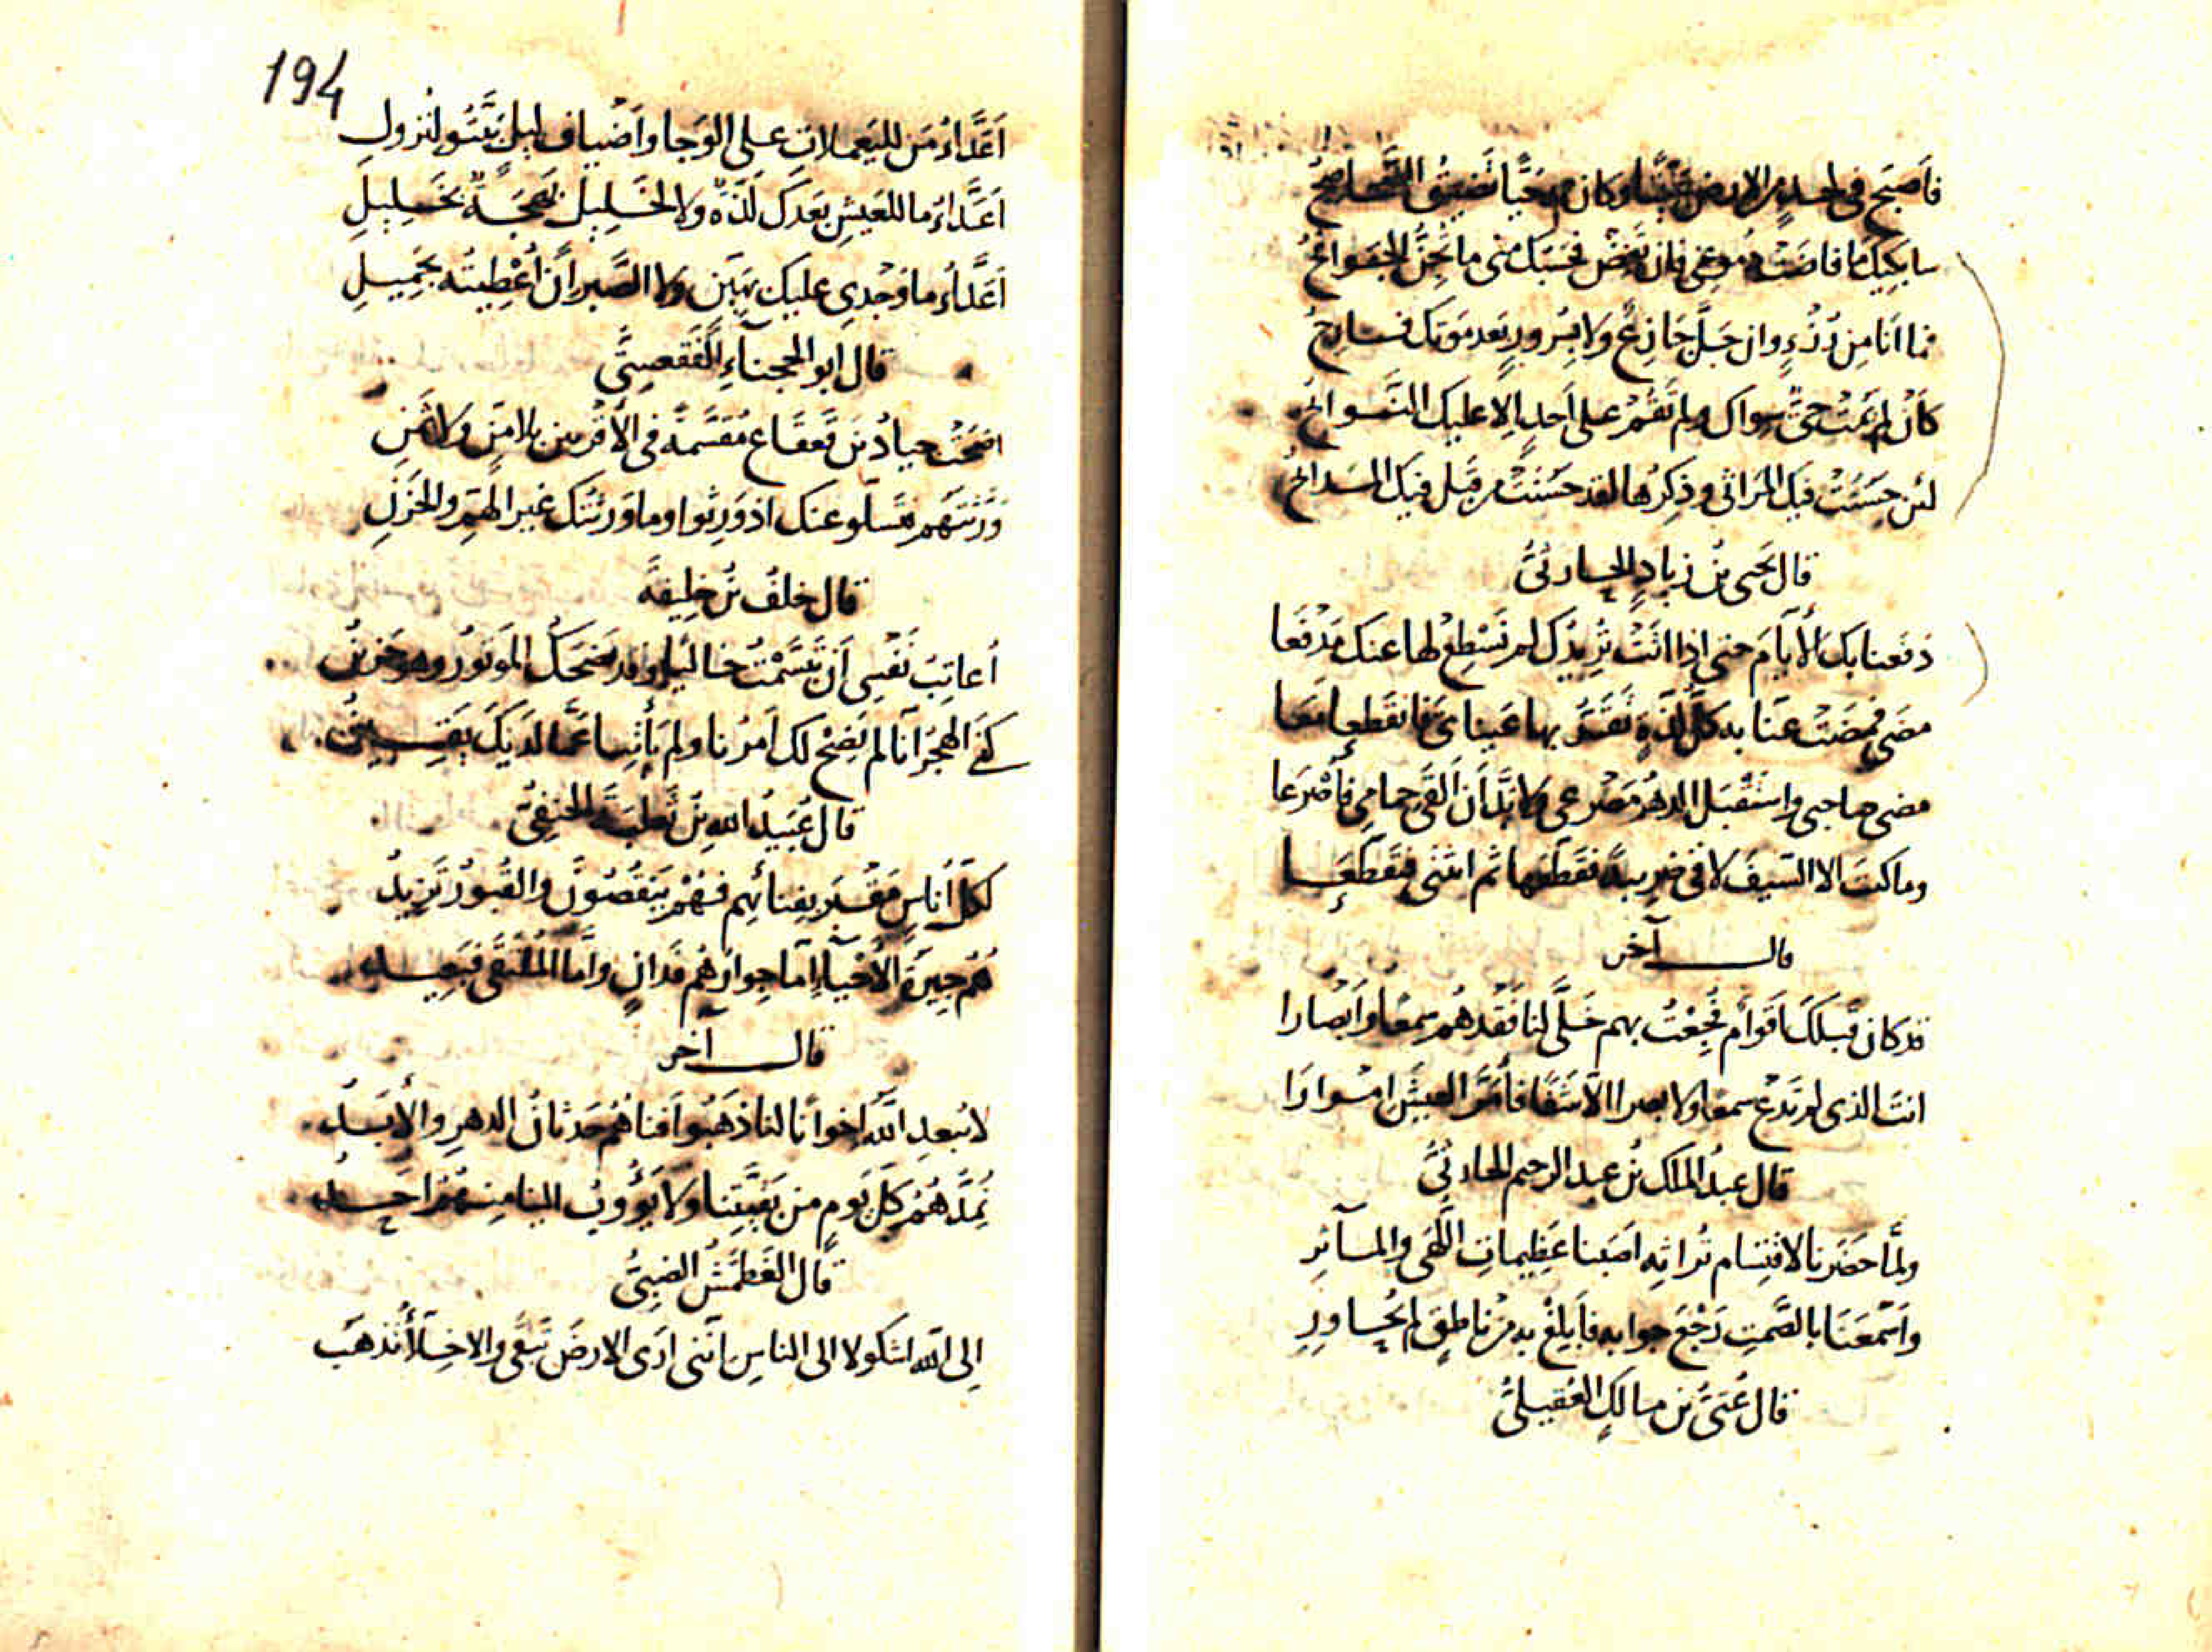 فاصبح في لحد من الارض ميتا وكان به حيا تضيق الصحاصح
سابكيك ما فاضت دموعي فان تغض فحسبك مني ما تجن الجوانح
فما انا من رزء وان جل جازع ولا بسرور بعد موتك فارح
كأن لم يمت حي سواك ولم تقم على احد الا عليك النوائح
لئن حسنت فيك المراثي وذكرها لقد حسنت من قبل فيك المدائح
قال يحيى بن زياد الحارثي
دفعنا بك الأيام حتى اذا اتت تريدك لم نسطع لها عنك مدفعا
مضى فمضت عنا به كل لذة تقر بها عيناي فانقطعا معا
مضى صاحبي واستقبل الدهر مصرعي ولا بد أن القى حمامي فأصرعا
وما كنت الا السيف لاقى ضريبة فقطعها ثم انثنى فتقطعا
قال آخر
قد كان قبلك اقوام فجعت بهم خلى لنا فقدهم سمعا وابصارا
انت الذي لم تدع سمعا ولا بصرا الا شفا فأمر العيش امرارا
قال عبد الملك بن عبد الرحيم الحارثي
ولما حضرنا لاقتسام تراثه اصبنا عظيمات اللهى والمآثر
واسمعنا بالصمت رجع جوابه فأبلغ به من ناطق لم يحاور
قال عتي بن مالك العقيلي
194
اعداء من لليعملات على الوجا واضياف ليل بيتوا لنزول
اعداء ما للعيش بعدك لذة ولا لخليل بهجة بخليل
اعداء ما وجدي عليك بهين ولا الصبر ان أعطيته بجميل
قال ابو الحجناء الفقعسي
اضحت جياد بن قعقاع مقسمة في الأقربين بلا من ولا ثمن
ورثتهم فتسلوا عنك اذ ورثوا وما ورثتك غير الهم والحزن
قال خلف بن خليفة
أعاتب نفسي أن تبسمت خاليا وقد يضحك الموتور وهو حزين
قال عبيد الله بن ثعلبة الحنفي
لكل أناس مقبر بفنائهم فهم ينقصون والقبور تزيد
هم جيرة الأحياء اما جوارهم فدان واما الملتقى فبعيد
قال آخر
لا يبعد الله اخوانا لنا ذهبوا افناهم حدثان الدهر والأبد
نمدهم كل يوم من بقيتنا ولا يؤوب الينا منهم احد
قال الغطمش الضبي
الى الله اشكو لا الى الناس انني ارى الارض تبقى والاخلاء تذهب